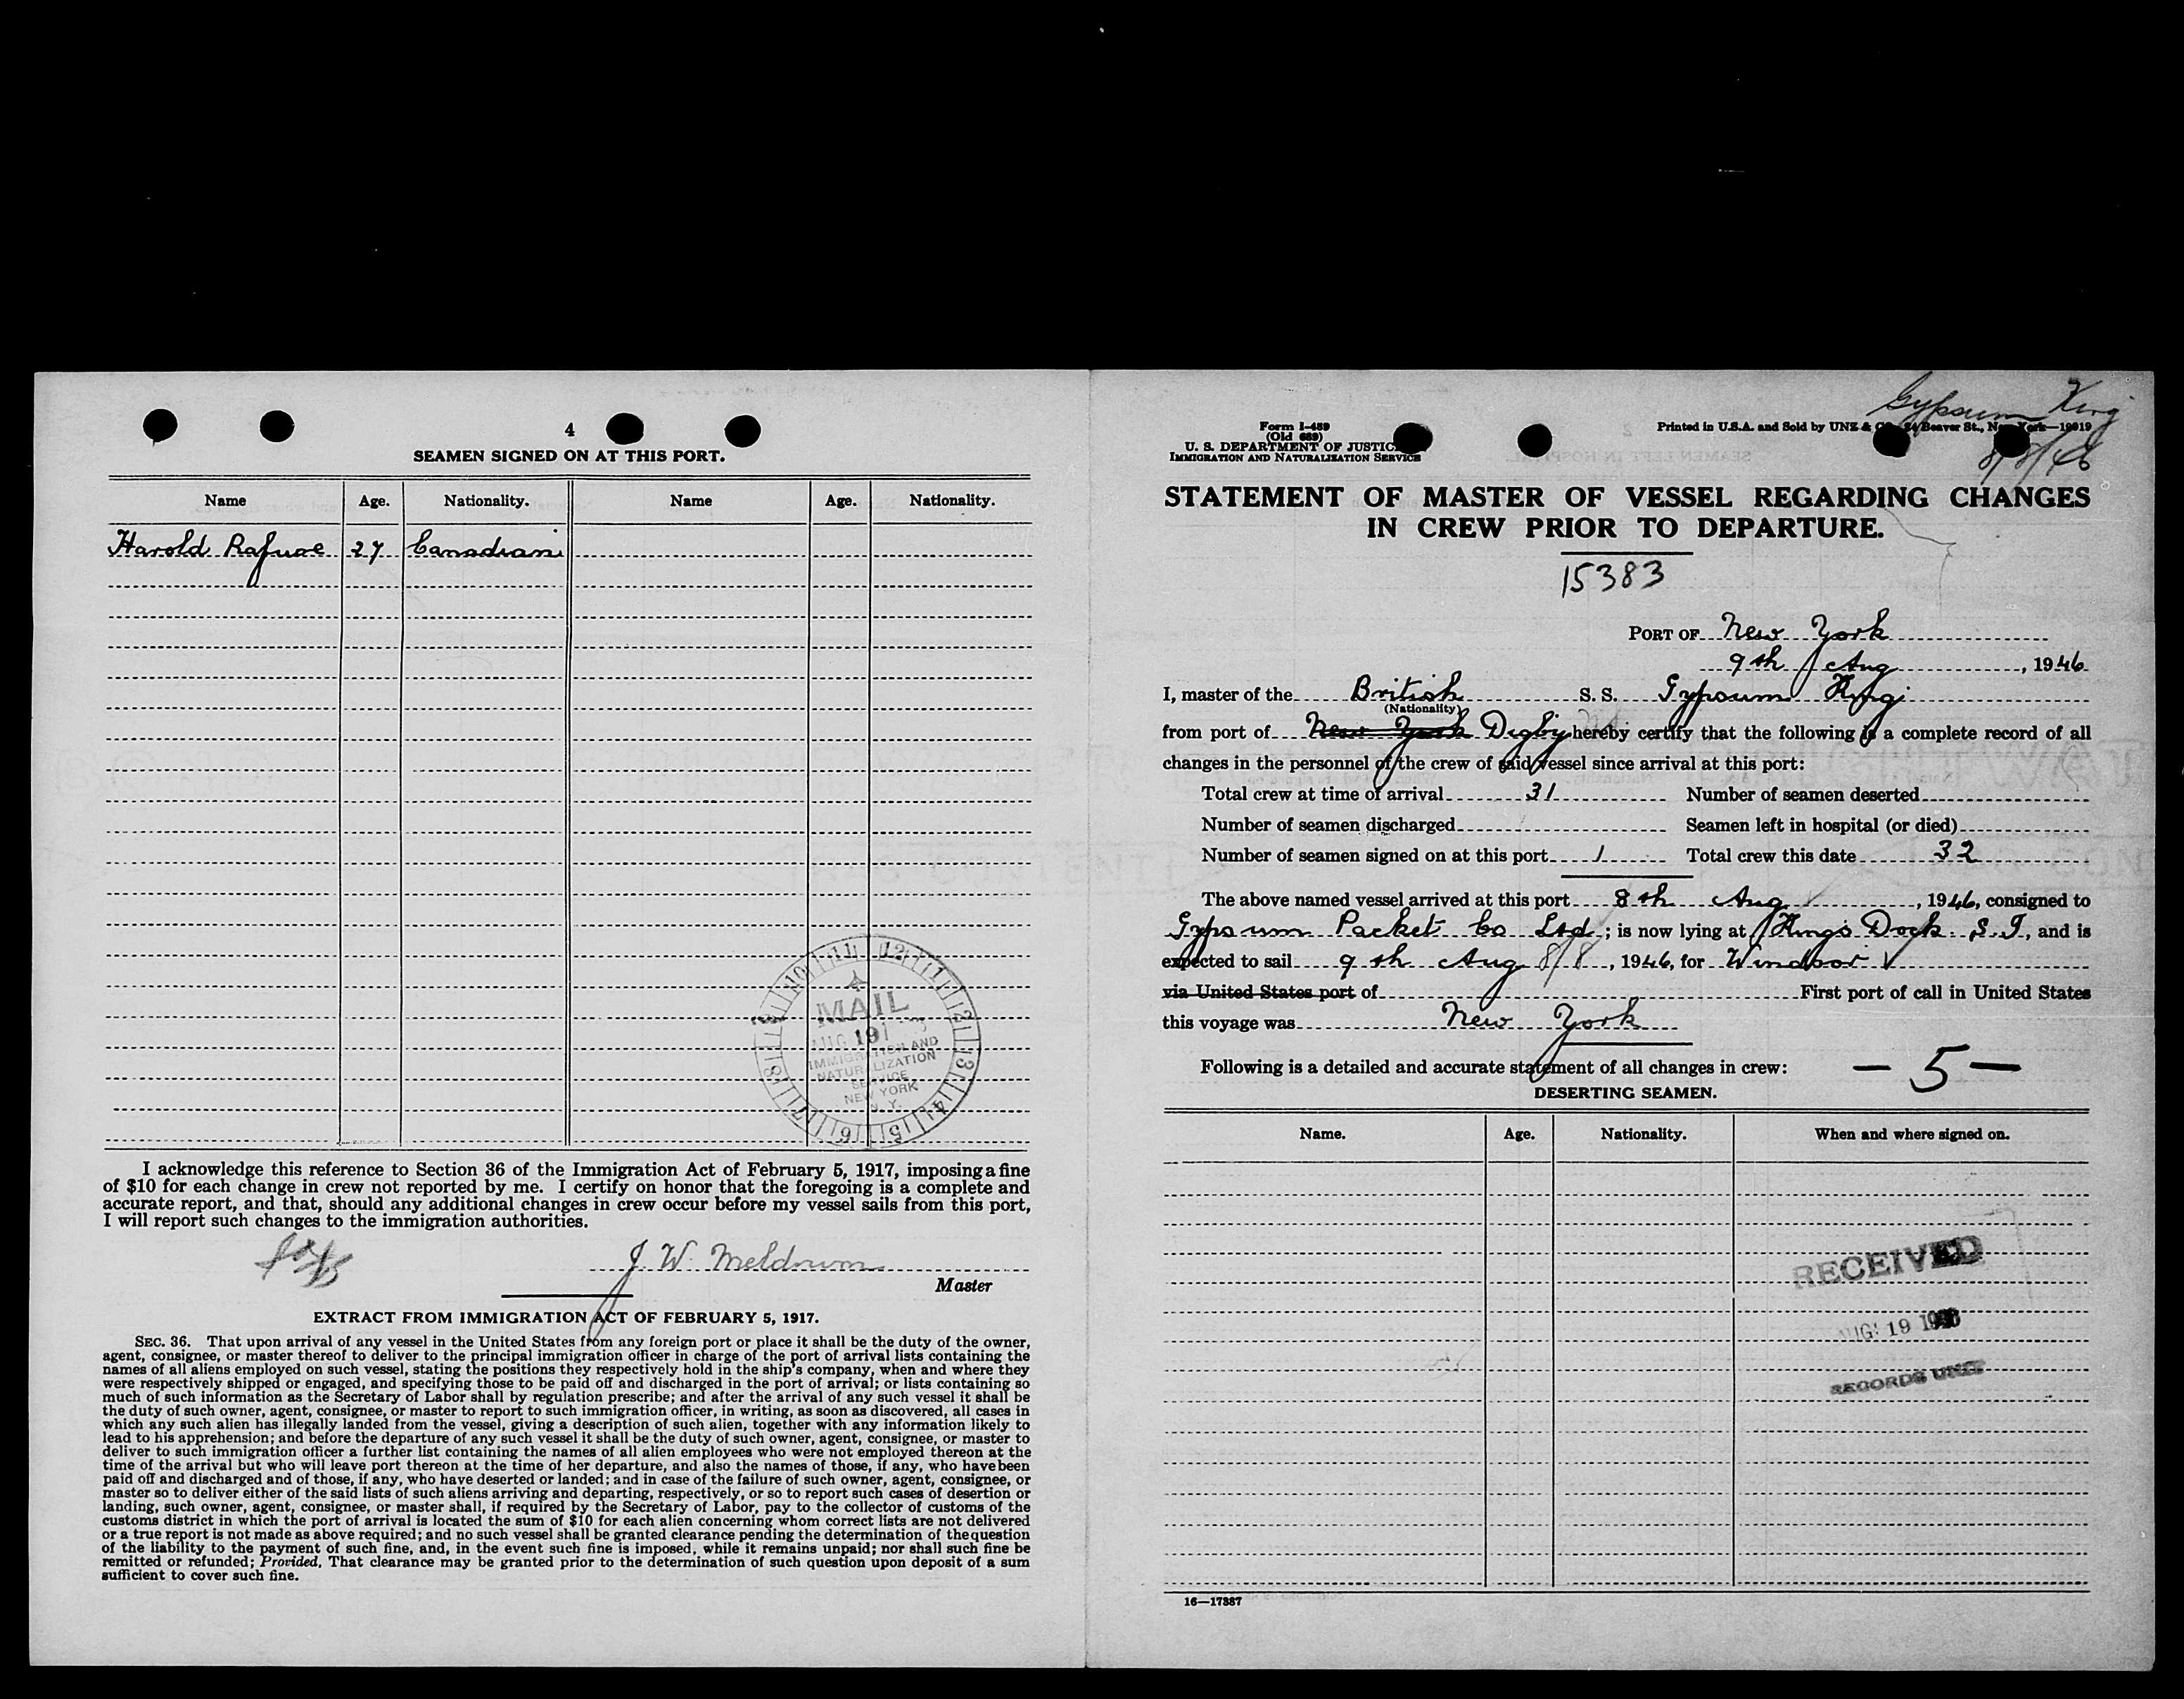 4
SEAMEN SIGNED ON AT THIS PORT.
Name Age. Nationality. Name Age. Nationality.
Harold Rafuse 27 Canadian
MAIL
AUG 19
IMMIGRATION AND
NATURALIZATION
SERVICE
NEW YORK
N. Y.
I acknowledge this reference to Section 36 of the Immigration Act of February 5, 1917, imposing a fine
of $10 for each change in crew not reported by me. I certify on honor that the foregoing is a complete and
accurate report, and that, should any additional changes in crew occur before my vessel sails from this port,
I will report such changes to the immigration authorities.
J. W. Meldrum
Master
EXTRACT FROM IMMIGRATION ACT OF FEBRUARY 5, 1917.
SEC. 36. That upon arrival of any vessel in the United States from any foreign port or place it shall be the duty of the owner,
agent, consignee, or master thereof to deliver to the principal immigration officer in charge of the port of arrival lists containing the
names of all aliens employed on such vessel, stating the positions they respectively hold in the ship's company, when and where they
were respectively shipped or engaged, and specifying those to be paid off and discharged in the port of arrival; or lists containing so
much of such information as the Secretary of Labor shall by regulation prescribe; and after the arrival of any such vessel it shall be
the duty of such owner, agent, consignee, or master to report to such immigration officer, in writing, as soon as discovered, all cases in
which any such alien has illegally landed from the vessel, giving a description of such alien, together with any information likely to
lead to his apprehension; and before the departure of any such vessel it shall be the duty of such owner, agent, consignee, or master to
deliver to such immigration officer a further list containing the names of all alien employees who were not employed thereon at the
time of the arrival but who will leave port thereon at the time of her departure, and also the names of those, if any, who have been
paid off and discharged and of those, if any, who have deserted or landed; and in case of the failure of such owner, agent, consignee, or
master so to deliver either of the said lists of such aliens arriving and departing, respectively, or so to report such cases of desertion or
landing, such owner, agent, consignee, or master shall, if required by the Secretary of Labor, pay to the collector of customs of the
customs district in which the port of arrival is located the sum of $10 for each alien concerning whom correct lists are not delivered
or a true report is not made as above required; and no such vessel shall be granted clearance pending the determination of the question
of the liability to the payment of such fine, and, in the event such fine is imposed, while it remains unpaid; nor shall such fine be
remitted or refunded; Provided, That clearance may be granted prior to the determination of such question upon deposit of a sum
sufficient to cover such fine.
Gypsum King
8/8/46
Form I-489
(Old 689)
U. S. DEPARTMENT OF JUSTICE
IMMIGRATION AND NATURALIZATION SERVICE
Printed in U.S.A. and Sold by UNZ & Co., 24 Beaver St., New York—19919
STATEMENT OF MASTER OF VESSEL REGARDING CHANGES
IN CREW PRIOR TO DEPARTURE.
15383
PORT OF New York
9th Aug, 1946
I, master of the British S. S. Gypsum King
(Nationality)
from port of New York Digby hereby certify that the following is a complete record of all
changes in the personnel of the crew of said vessel since arrival at this port:
Total crew at time of arrival 31 Number of seamen deserted
Number of seamen discharged Seamen left in hospital (or died)
Number of seamen signed on at this port 1 Total crew this date 32
The above named vessel arrived at this port 8th Aug, 1946, consigned to
Gypsum Packet Co Ltd; is now lying at Kings Dock S. I, and is
expected to sail 9th Aug 8/8, 1946, for Windsor
via United States port of First port of call in United States
this voyage was New York
Following is a detailed and accurate statement of all changes in crew: — 5 —
DESERTING SEAMEN.
Name. Age. Nationality. When and where signed on.
RECEIVED
AUG 19 1946
RECORDS UNIT
16—17387